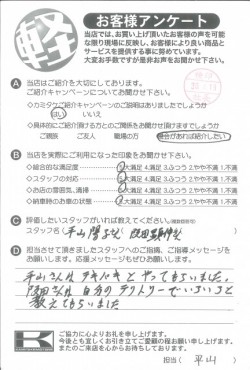 軽
お客様アンケート
当店では、お買い上げ頂いたお客様の声を可能な
限り現場に反映し、お客様により良い商品と
サービスを提供する事に努めています。
大変お手数ですが是非お声をお聞かせ下さい。
A 当店はご紹介を大切にしております。
ご紹介キャンペーンについてお聞かせ下さい。
◇カミタケご紹介キャンペーンのご説明はありましたでしょうか
はい いいえ
◇具体的にご紹介頂ける方とのご関係をお聞かせ頂けますでしょうか
ご親族 ご友人 職場の方 機会があれば紹介したい
B 当店を実際にご利用になった印象をお聞かせ下さい。
◇総合的な満足度 5.大満足 4.満足 3.ふつう 2.やや不満 1.不満
◇スタッフの対応 5.大満足 4.満足 3.ふつう 2.やや不満 1.不満
◇お店の雰囲気、清掃 5.大満足 4.満足 3.ふつう 2.やや不満 1.不満
◇納車時のお車の状態 5.大満足 4.満足 3.ふつう 2.やや不満 1.不満
C 評価したいスタッフがいれば教えてください。
スタッフ名
D 担当させて頂きましたスタッフへのご指摘、ご指導メッセージを
お願いします。ご自由にお書き下さい。
平山さんは テキパキと やってもらいました。
阪田さんは
教えてもらいました
K
ご協力に心よりお礼を申し上げます。
今後とも宜しくお引き立てご愛顧の程お願い申し上げます。
またのご来店を心からお待ちしております。
担当( 平山 )